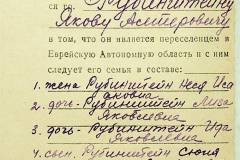 ся гр. Рубинштейну
Якову Ахтеровичу
в том, что он является переселенцем в
Еврейскую Автономную область и с ним
следует его семья в составе:
1. жена Рубинштейн
Яковна
2. дочь- Рубинштейн Лиза
Яковлевна
3. дочь- Рубинштейн Ида
Яковлевна
4. сын, Рубинштейн Сюня